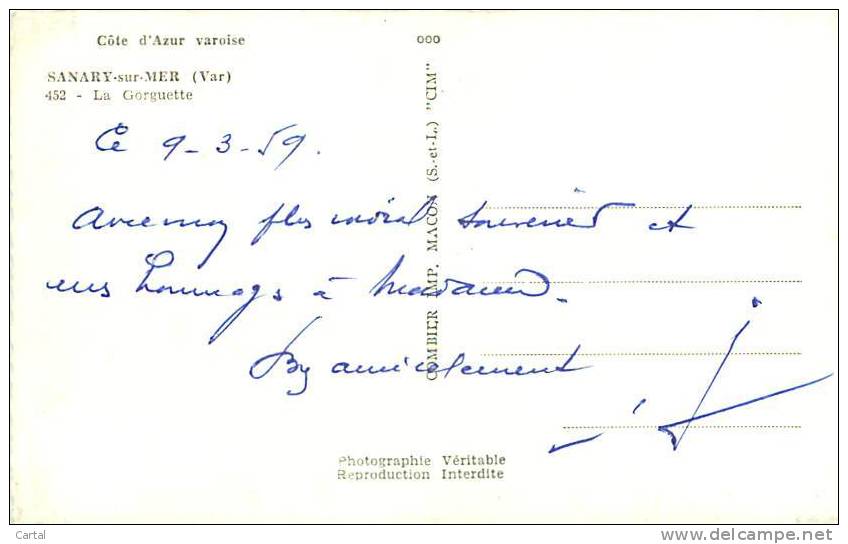 Côte d'Azur varoise
ooo
SANARY-sur-MER (Var)
452 - La Gorguette
COMBIER IMP. MACON (S.-et-L.) "CIM"
Ce 9-3-59.
Avec mon plus cordial souvenir et
mes hommages à Madame.
By amicalement
Photographie Véritable
Reproduction Interdite
Cartal
delcampe.net